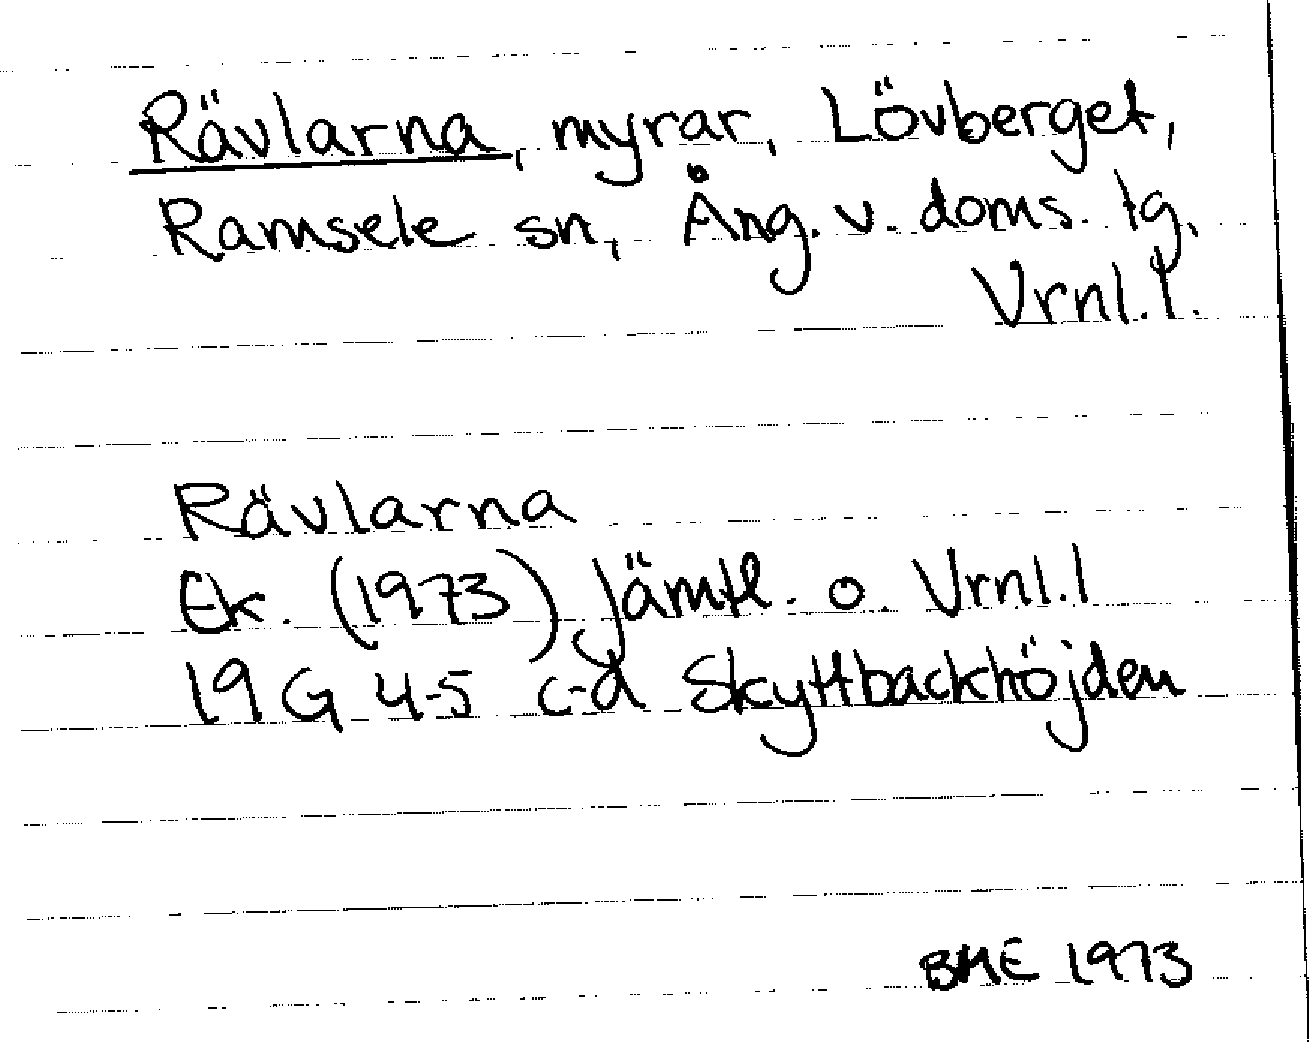 Rävlarna, myrar, Lövberget,
Ramsele sn, Ång. v. doms. tg,
Vrnl.l.
Rävlarna
Ek. (1973) Jämtl. o. Vrnl.l
19 G 4-5 c-d Skyttbackhöjden
BME 1973